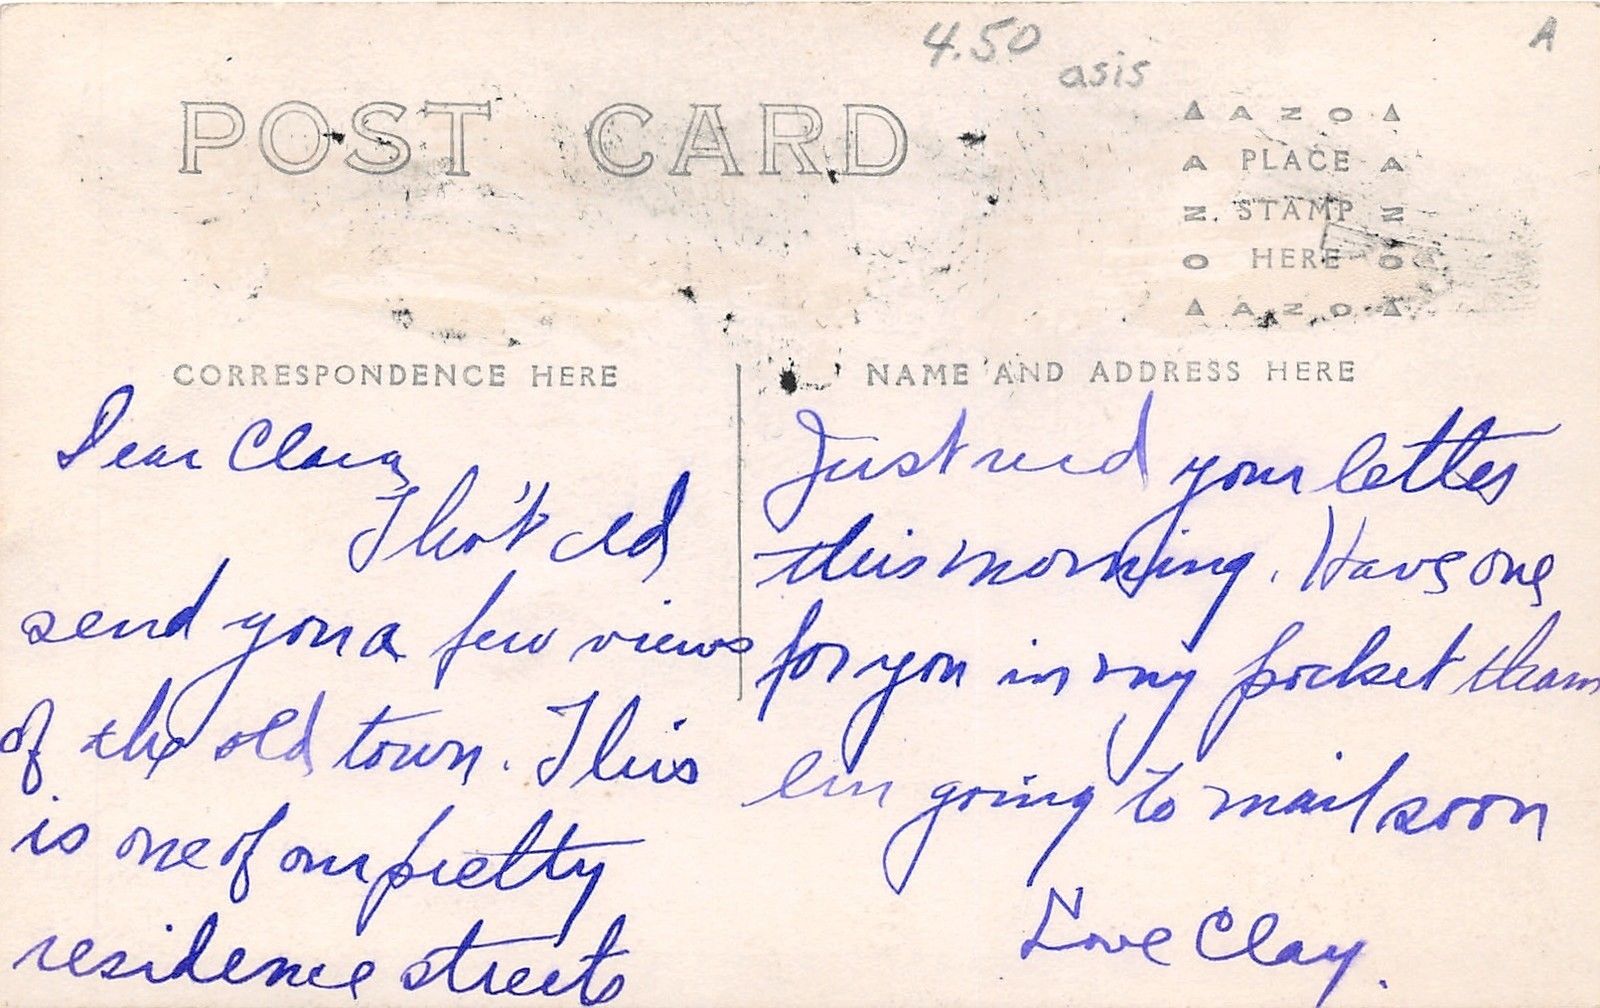 4.50
asis
A
POST CARD
AZO
A PLACE A
Z STAMP Z
O HERE O
AZO
CORRESPONDENCE HERE
NAME AND ADDRESS HERE
Dear Clara,
I tho't I'd
send you a few views
of the old town. This
is one of our pretty
residence streets
Just rec'd your letter
this morning. Have one
for you in my pocket
I'm going to mail soon
Love Clay.